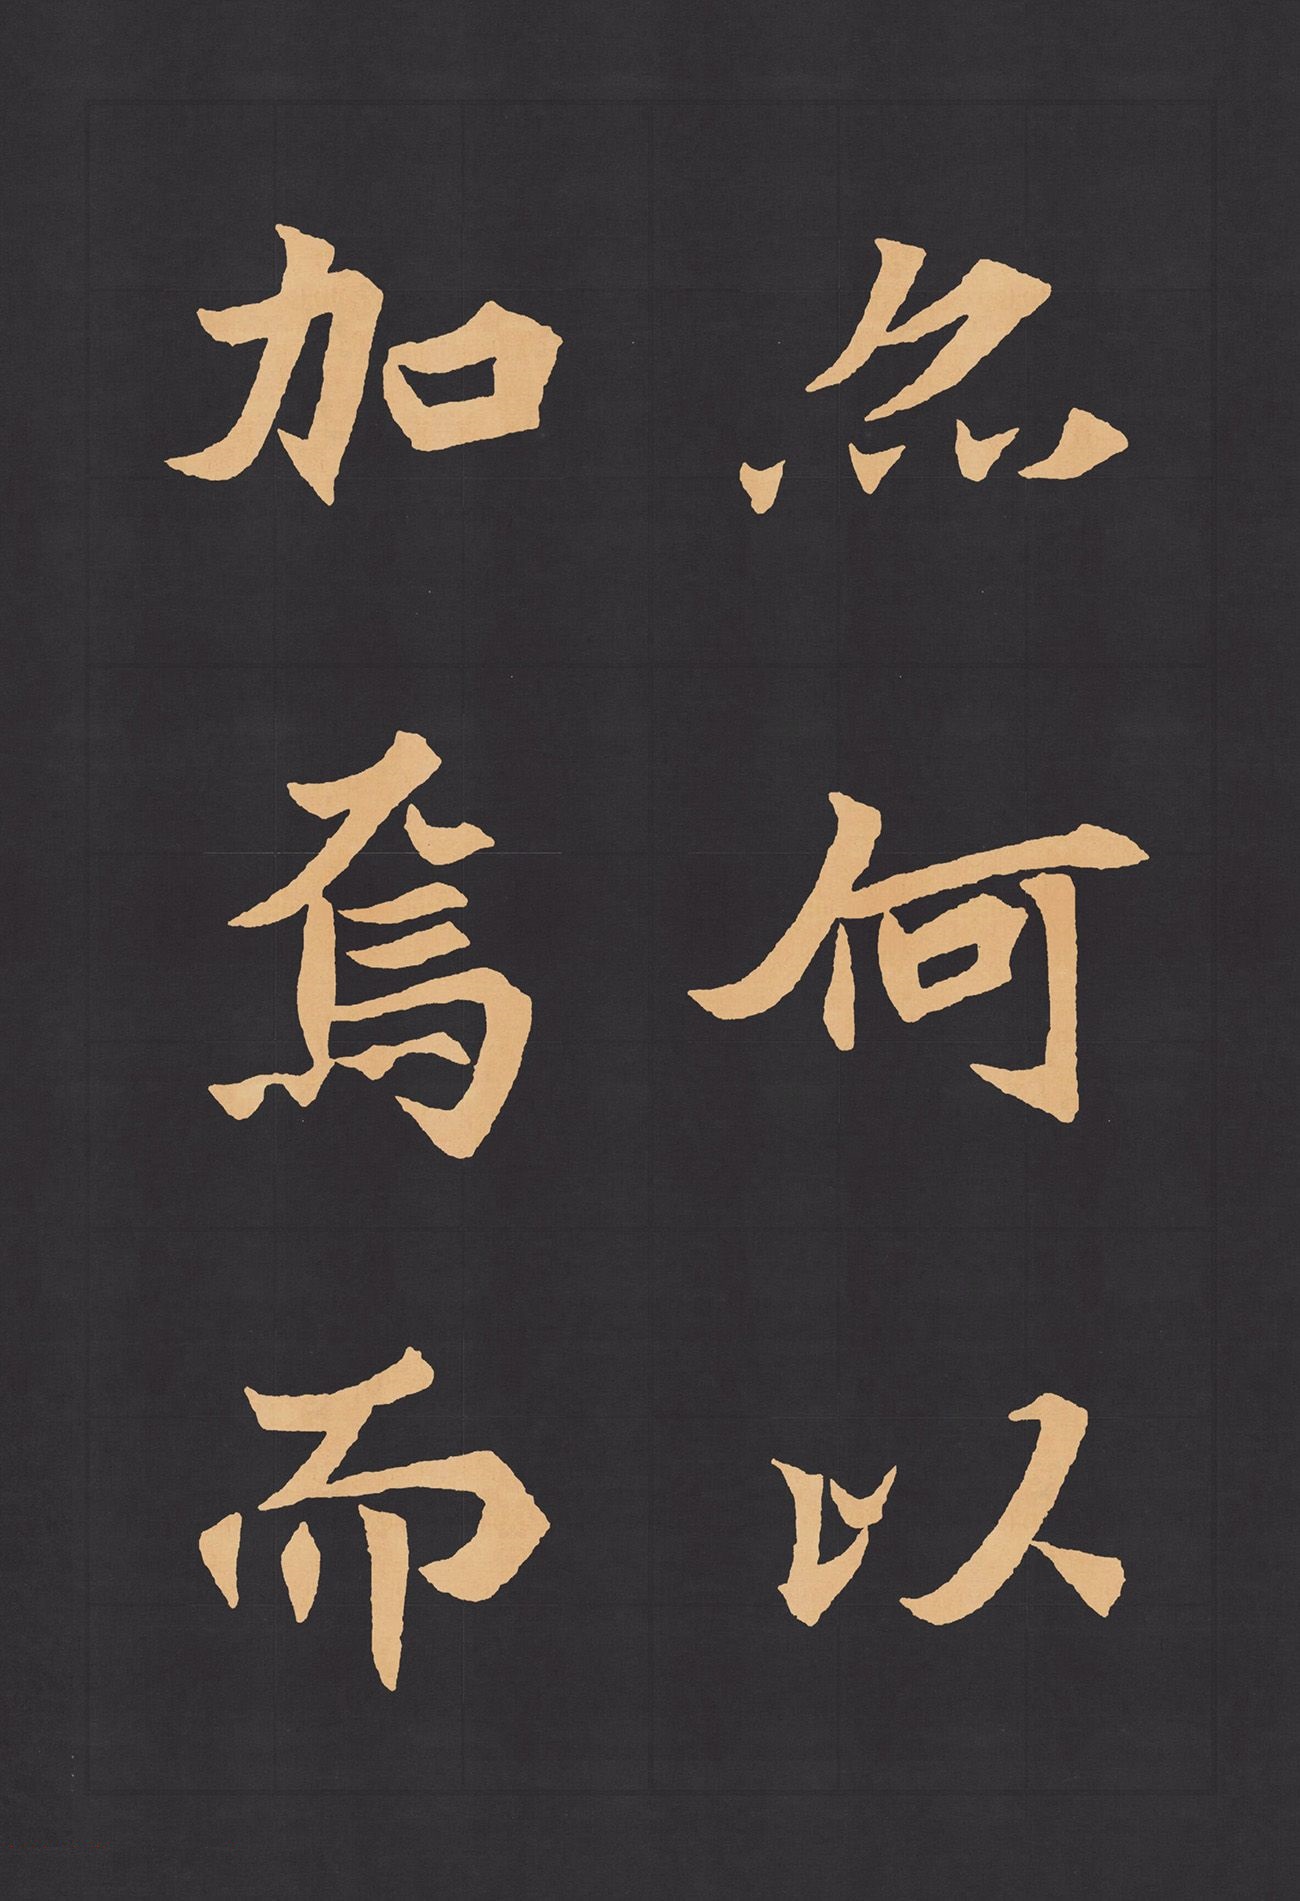 何以
加焉而